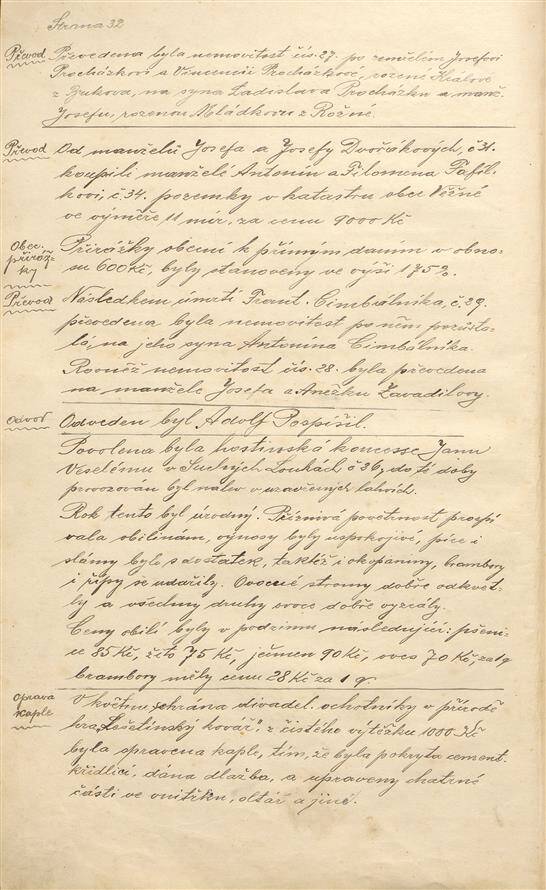 Strana 32
Převod Převedena byla nemovitost čís. 27. po zemřelém Josefovi
Procházkovi a Vincencii Procházkové, rozené Králové
z Zrukova, na syna Ladislava Procházku a manž.
Josefu, rozenou Mládkovu z Rožné.
Převod Od manželů Josefa a Josefy Dvořákových, č 31.
koupili manželé Antonín a Filomena Tafíl-
kovi, č. 34. pozemky v katastru obce Věžné
ve výměře 11 mír, za cenu 9000 Kč
Obec. přirážky Přirážky obecní k přímým daním v obno-
su 600 Kč, byly stanoveny ve výši 175%.
Převod Následkem úmrtí Frant. Cimbálníka, č. 29.
převedena byla nemovitost po něm pozůsta-
lá, na jeho syna Antonína Cimbálníka.
Rovněž nemovitost čís. 28. byla převedena
na manžele Josefa a Anežku Zavadilovy.
Odvod Odveden byl Adolf Pospíšil.
Povolena byla hostinská koncesse Janu
Veselému v Suchých Loukách č 36, do té doby
provozován byl nálev v uzavřených lahvích.
Rok tento byl úrodný. Příznivá povětrnost prospí
vala obilinám, výnosy byly uspokojivé, píce i
slámy bylo s dostatek, taktéž i okopaniny, brambory
i řípy se udařily. Ovocné stromy dobře odkvet-
ly a všechny druhy ovoce dobře vyzrály.
Ceny obilí byly v podzimu následující: pšeni-
ce 85 Kč, žito 75 Kč, ječmen 90 Kč, oves 70 Kč, za 1 q
brambory měly cenu 28 Kč za 1 q.
Oprava kaple V květnu sehrána divadel. ochotníky v přírodě
hra „Lešetínský kovář", z čistého výtěžku 1000 Kč
byla spravena kaple, tím, že byla pokryta cement.
křidlicí, dána dlažba, a upraveny chatrné
části ve vnitřku, oltář a jiné.